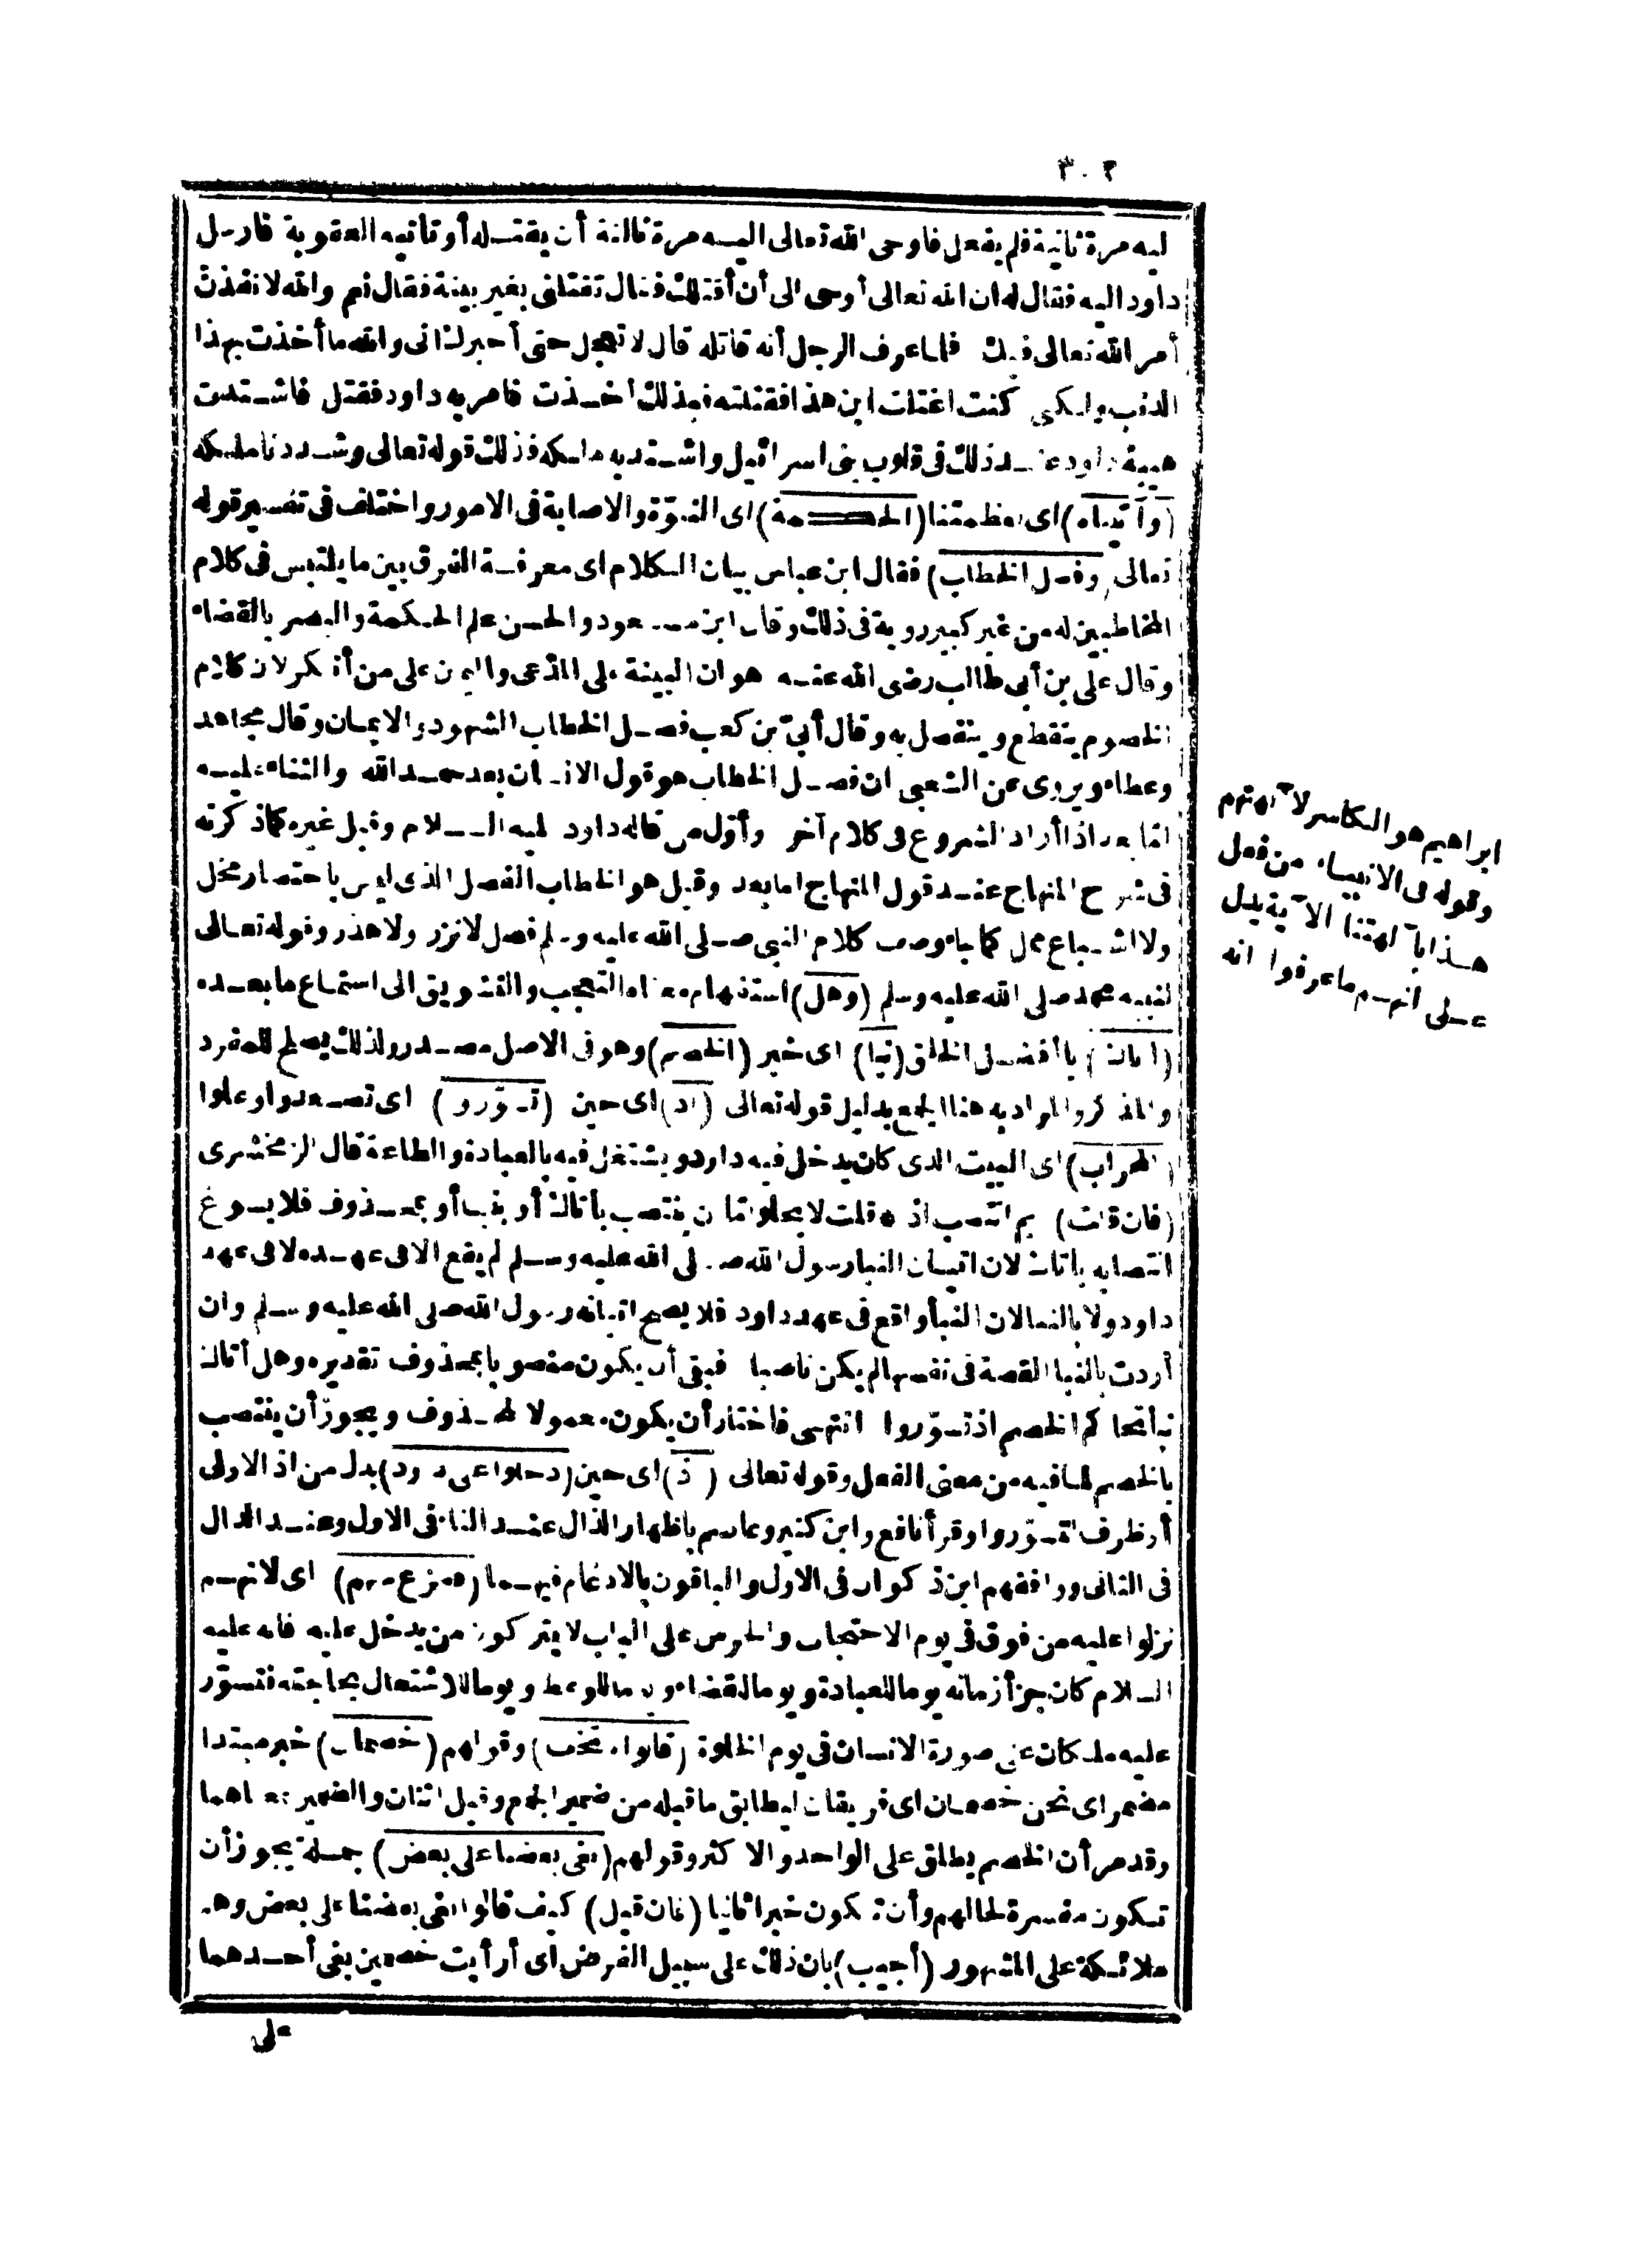 ٣٠٢
اليه مرة ثانية فلم يفعل فاوحى الله تعالى اليه مرة ثالثة أن يقتله أو تأتيه العقوبة فارسل
داود اليه فقال له ان الله تعالى أوحى الى أن أقتلك فقال تقتلنى بغير بينة فقال نعم والله لانفذن
أمر الله تعالى فيك فلما عرف الرجل أنه قاتله قال لا تعجل حتى أخبرك انى والله ما أخذت بهذا
الذنب ولكنى كنت اغتلت ابن هذا فقتلته فبذلك أخذت فامر به داود فقتل فاشتدت
هيبة داود عند ذلك فى قلوب بنى اسرائيل واشتد به ملكه فذلك قوله تعالى وشددنا ملكه
(وآتيناه) اى بعظمتنا (الحكمة) اى النبوّة والاصابة فى الامور واختلف فى تفسير قوله
تعالى (وفصل الخطاب) فقال ابن عباس بيان الكلام اى معرفة الفرق بين ما يلتبس فى كلام
المخاطبين له من غير كبير روية فى ذلك وقال ابن مسعود والحسن علم الحكمة والبصر بالقضاء
وقال على بن أبى طالب رضى الله عنه هو ان البينة على المدّعى واليمين على من أنكر لان كلام
الخصوم ينقطع وينفصل به وقال أبىّ بن كعب فصل الخطاب الشهود والايمان وقال مجاهد
وعطاء ويروى عن الشعبى ان فصل الخطاب هو قول الانسان بعد حمد الله والثناء عليه
امّا بعد اذا أراد الشروع فى كلام آخر وأوّل من قاله داود عليه السلام وقيل غيره كما ذكرته
فى شرح المنهاج عند قول المنهاج اما بعد وقيل هو الخطاب الفصل الذى ليس باختصار مخل
ولا اشباع ممل كما جاء وصف كلام النبى صلى الله عليه وسلم فصل لا نزر ولا هذر وقوله تعالى
لنبيه محمد صلى الله عليه وسلم (وهل) استفهام معناه التعجب والتشويق الى استماع ما بعده
(أتاك) يا أفضل الخلق (نبأ) اى خبر (الخصم) وهو فى الاصل مصدر ولذلك يصلح للمفرد
والمذكر والمراد به هنا الجمع بدليل قوله تعالى (اذ) اى حين (تسوّروا) اى تصعدوا وعلوا
(المحراب) اى البيت الذى كان يدخل فيه داود ويشتغل فيه بالعبادة والطاعة قال الزمخشرى
(فان قلت) بم انتصب اذ قلت لا يخلو اما ان ينتصب بأتاك أو بنبأ أو بمحذوف فلا يسوغ
انتصابه بأتاك لان اتيان النبا رسول الله صلى الله عليه وسلم لم يقع الا فى عهده لا فى عهد
داود ولا بالنبا لان النبأ واقع فى عهد داود فلا يصح اتيانه رسول الله صلى الله عليه وسلم وان
أردت بالنبا القصة فى نفسها لم يكن ناصبا فبقى أن يكون منصوبا بمحذوف تقديره وهل أتاك
نبأ تحاكم الخصم اذ تسوّروا انتهى فاختار أن يكون معمولا لمحذوف ويجوز أن ينتصب
بالخصم لما فيه من معنى الفعل وقوله تعالى (اذ) اى حين (دخلوا على داود) بدل من اذ الاولى
أو ظرف لتسوّروا وقرأ نافع وابن كثير وعاصم باظهار الذال عند التاء فى الاول وعند الدال
فى الثانى ووافقهم ابن ذكوان فى الاول والباقون بالادغام فيهما (ففزع منهم) اى لانهم
نزلوا عليه من فوق فى يوم الاحتجاب والحرس على الباب لا يتركون من يدخل عليه فانه عليه
السلام كان جزأ زمانه يوما للعبادة ويوما للقضاء ويوما للوعظ ويوما للاشتغال بحاجته فتسوّر
عليه ملكان على صورة الانسان فى يوم الخلوة (قالوا لا تخف) وقولهم (خصمان) خبر مبتدا
مضمر اى نحن خصمان اى فريقان ليطابق ما قبله من ضمير الجمع وقيل اثنان والضمير بمعناهما
وقد مر أن الخصم يطلق على الواحد والاكثر وقولهم (بغى بعضنا على بعض) جملة يجوز أن
تكون مفسرة لحالهم وأن تكون خبرا ثانيا (فان قيل) كيف قالوا بغى بعضنا على بعض وهم
ملائكة على المشهور (أجيب) بان ذلك على سبيل الفرض اى أرأيت خصمين بغى أحدهما
على
ابراهيم هو الكاسر لآلهتهم
وقوله فى الانبياء من فعل
هذا بآلهتنا الآية يدل
على انهم ما عرفوا انه